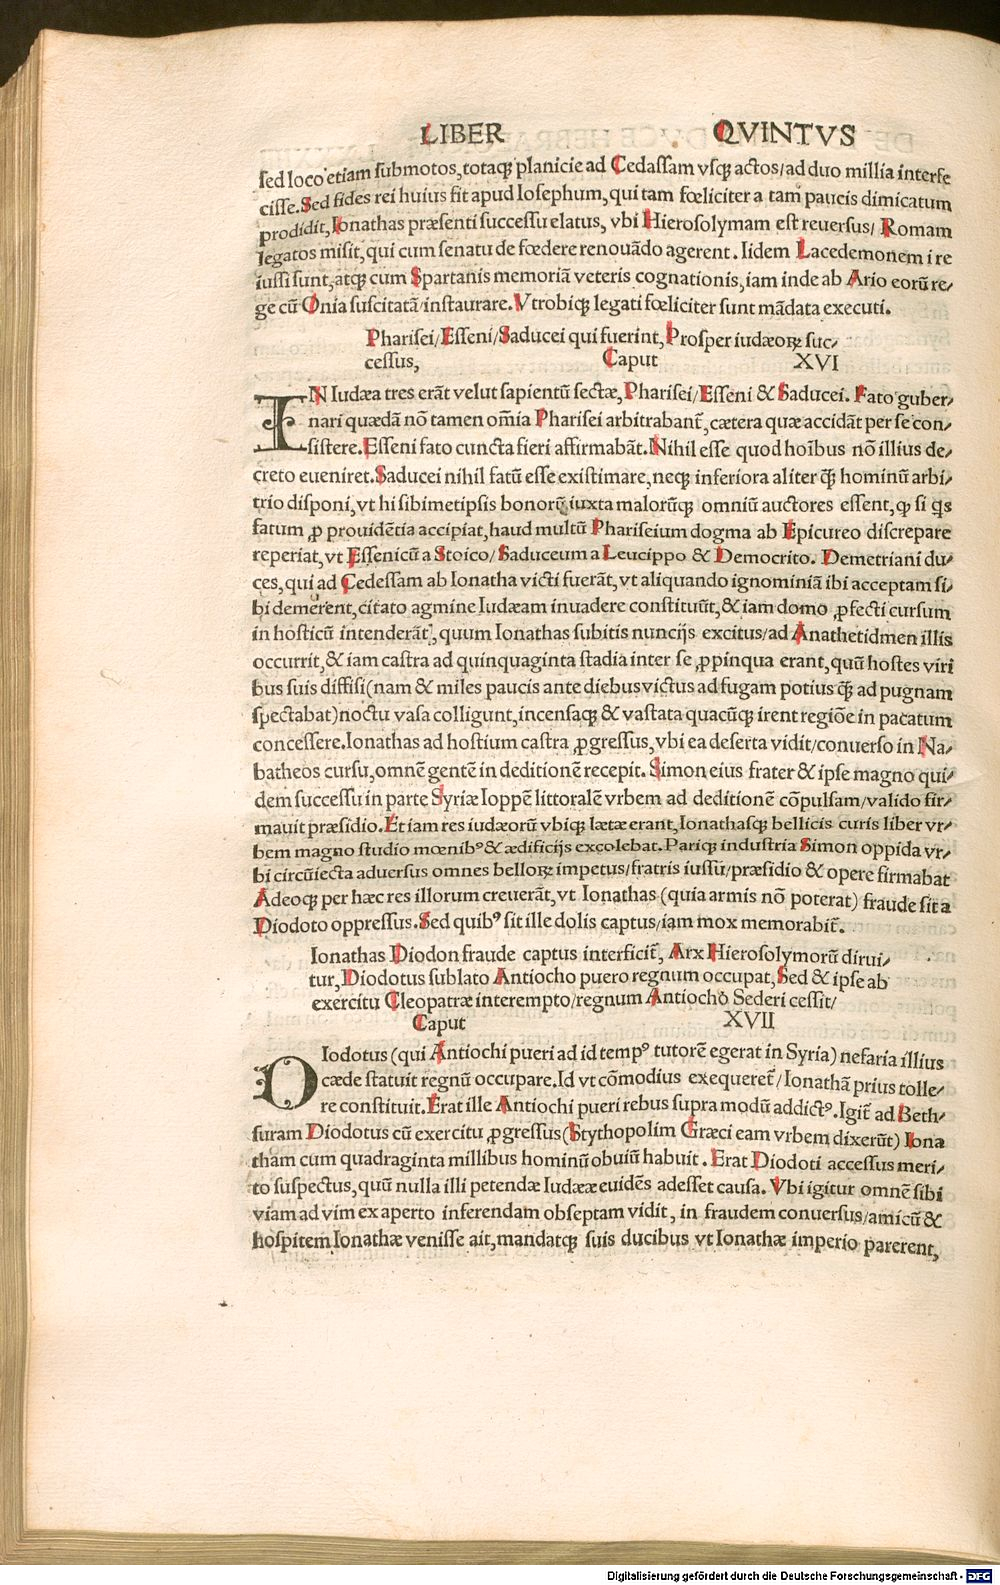 LIBER QVINTVS
sed loco etiam submotos, totaqꝫ planicie ad Cedassam vsqꝫ actos/ad duo millia interfe
cisse. Sed fides rei huius fit apud Iosephum, qui tam fœliciter a tam paucis dimicatum
prodidit, Ionathas præsenti successu elatus, vbi Hierosolymam est reuersus/ Romam
legatos misit, qui cum senatu de fœdere renouādo agerent. Iidem Lacedemonem ire
iussi sunt, atqꝫ cum Spartanis memoriā veteris cognationis, iam inde ab Ario eorū re⸗
ge cū Onia suscitatā/instaurare. Vtrobiqꝫ legati fœliciter sunt mādata executi.
Pharisei/Esseni/Saducei qui fuerint, Prosper iudæoꝝ suc⸗
cessus, Caput XVI
IN Iudæa tres erāt velut sapientū sectæ, Pharisei/Esseni & Saducei. Fato guber⸗
nari quædā nō tamen om̄ia Pharisei arbitrabant̃, cætera quæ accidāt per se con⸗
sistere. Esseni fato cuncta fieri affirmabāt. Nihil esse quod hoībus nō illius de⸗
creto eueniret. Saducei nihil fatū esse existimare, neqꝫ inferiora aliter q̄ꝫ hominū arbi⸗
trio disponi, vt hi sibimetipsis bonorū iuxta malorūqꝫ omniū auctores essent, ꝙ si qͥs
fatum ꝓ prouidētia accipiat, haud multū Phariseium dogma ab Epicureo discrepare
reperiat, vt Essenicū a Stoico/Saduceum a Leucippo & Democrito. Demetriani du⸗
ces, qui ad Cedessam ab Ionatha victi fuerāt, vt aliquando ignominiā ibi acceptam si⸗
bi demerent, citato agmine Iudæam inuadere constituūt, & iam domo ꝓfecti cursum
in hosticū intenderāt, quum Ionathas subitis nuncijs excitus/ad Anathetidmen illis
occurrit, & iam castra ad quinquaginta stadia inter se ꝓpinqua erant, quū hostes viri
bus suis diffisi(nam & miles paucis ante diebus victus ad fugam potius q̄ꝫ ad pugnam
spectabat)noctu vasa colligunt, incensaqꝫ & vastata quacūqꝫ irent regiōe in pacatum
concessere. Ionathas ad hostium castra ꝓgressus, vbi ea deserta vidit/conuerso in Na⸗
batheos cursu, omnē gentē in deditionē recepit. Simon eius frater & ipse magno qui⸗
dem successu in parte Syriæ Ioppē littoralē vrbem ad deditionē cōpulsam/valido fir⸗
mauit præsidio. Et iam res iudæorū vbiqꝫ lætæ erant, Ionathasqꝫ bellicis curis liber vr⸗
bem magno studio mœnibꝰ & ædificijs excolebat. Pariqꝫ industria Simon oppida vr⸗
bi circūiecta aduersus omnes belloꝝ impetus/fratris iussu/præsidio & opere firmabat
Adeoqꝫ per hæc res illorum creuerāt, vt Ionathas (quia armis nō poterat) fraude sit a
Diodoto oppressus. Sed quibꝰ sit ille dolis captus/iam mox memorabit̃.
Ionathas Diodon fraude captus interficit̃, Arx Hierosolymorū dirui⸗
tur, Diodotus sublato Antiocho puero regnum occupat, Sed & ipse ab
exercitu Cleopatræ interempto/regnum Antiocho Sederi cessit/
Caput XVII
DIodotus (qui Antiochi pueri ad id tempꝰ tutorē egerat in Syria) nefaria illius
cæde statuit regnū occupare. Id vt cōmodius exequeret̃/Ionathā prius tolle⸗
re constituit. Erat ille Antiochi pueri rebus supra modū addictꝰ. Igit̃ ad Beth⸗
suram Diodotus cū exercitu ꝓgressus(Stythopolim Græci eam vrbem dixerūt) Iona
tham cum quadraginta millibus hominū obuiū habuit. Erat Diodoti accessus meri⸗
to suspectus, quū nulla illi petendæ Iudææ euidēs adesset causa. Vbi igitur omnē sibi
viam ad vim ex aperto inferendam obseptam vidit, in fraudem conuersus/amicū &
hospitem Ionathæ venisse ait, mandatqꝫ suis ducibus vt Ionathæ imperio parerent,
Digitalisierung gefördert durch die Deutsche Forschungsgemeinschaft - DFG